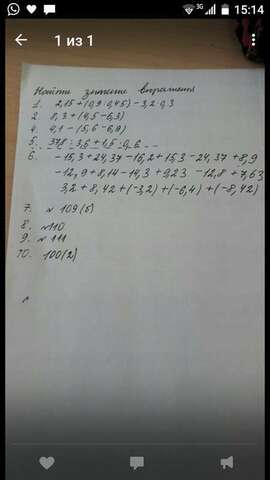 3G 15:14
1 из 1
Найти значение выражения
1. 2,15 + (0,9 - 0,45) - 3,2 · 0,3
2 8,3 + (4,5 - 6,3)
4. 4,1 - (5,6 - 6,9)
5. 378 : 3,6 + 1,5 · 0,6
6. - 15,3 + 24,37 - 16,2 + 15,3 - 24,37 + 8,9
- 12,9 + 8,14 - 14,3 + 0,23 - 12,8 + 7,63
3,2 + 8,42 + (-3,2) + (-6,4) + (-8,42)
7. № 109 (б)
8. №110
9. № 111
10. 100(2)